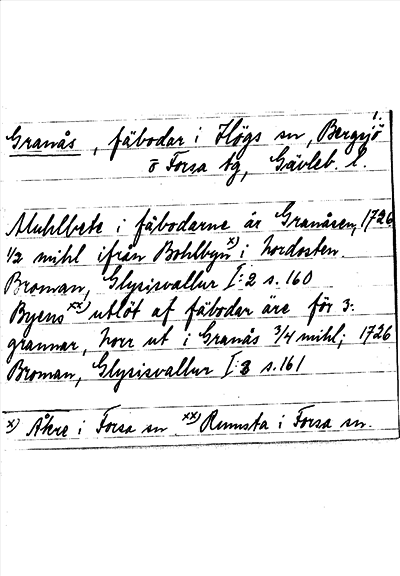 1.
Granås, fäbodar i Högs sn, Bergsjö
o Forsa tg, Gävleb. l.
Muhlbete i fäbodarne är Granåsen, 1726
1/2 mihl ifrån Bohlbyn x) i nordosten.
Broman, Glysisvallur I:2 s. 160
Byens xx) utlöt af fäbodar äre för 3:
grannar, norr ut i Granås 3/4 mihl; 1726
Broman, Glysisvallur I:2 s. 161
x) Åkre i Forsa sn xx) Runnsta i Forsa sn.